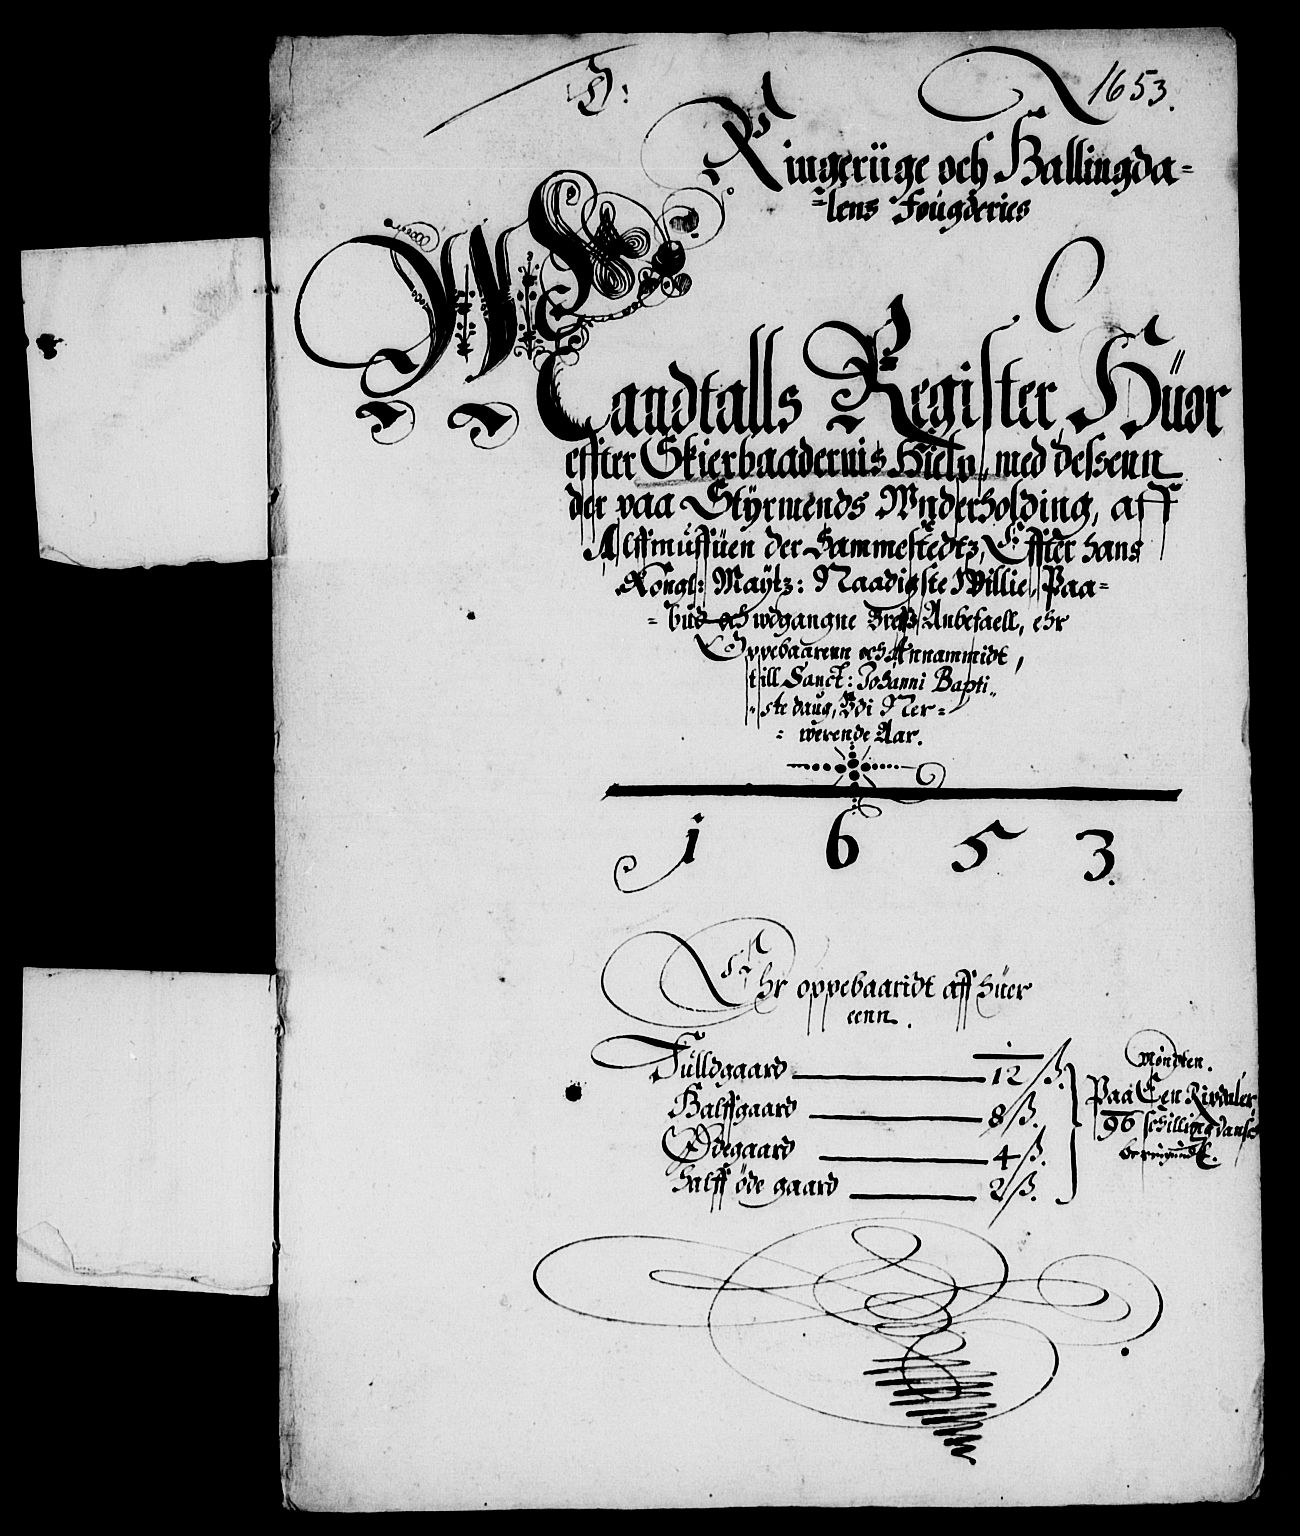 1653.
Ringerüge och Hallingda=
=lens Fougderies
Mandtalls Register, Hüor
effter Skierbaadernis Hielp, med dessenn
der paa Styrmends Wnderholding, aff
Allmüffüen der Sammestedtz, Effter hans
Kongl: Maytz: Naadigste Willie, Paa=
=bud och wdgangne Breffs Anbefaell, ehr
Oppebaarenn och Annammidt,
till Sanct: Johanni Bapti=
=ste daug, Udi Ner=
=werende Aar.
1653.
Ehr oppebaaridt aff hüer
eenn.
Fülldgaard — 12 ß.
Halffgaard — 8 ß.
Ødegaard — 4 ß.
halff øde gaard — 2 ß.
Møndten.
Paa Een Rixdaler
96 schilling dansch